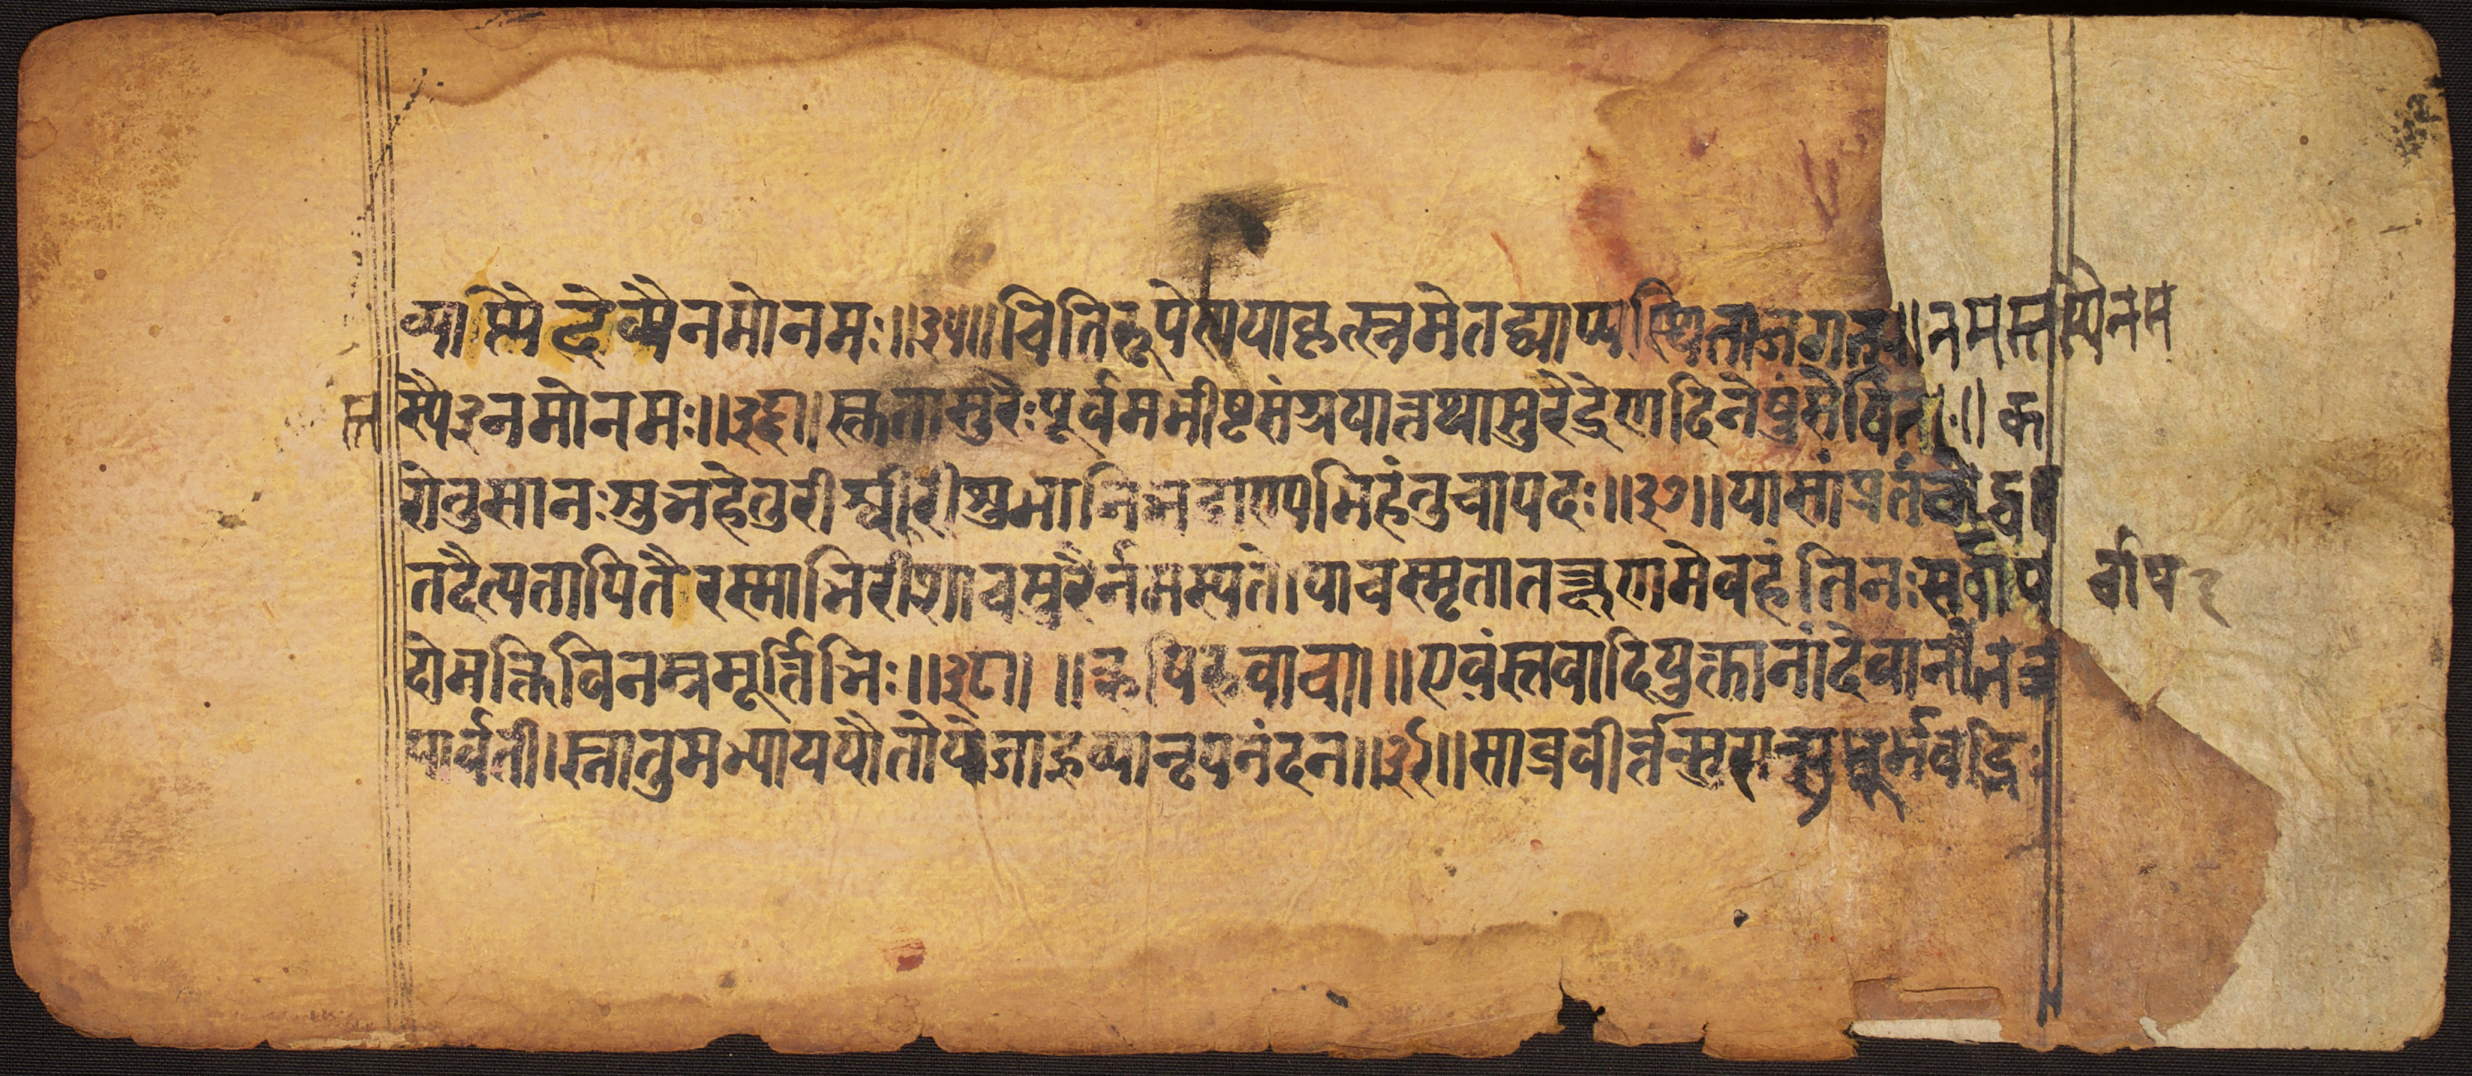 व्याप्त्यै देव्यै नमो नमः ॥३५॥ चितिरूपेण या कृत्स्नमेतद्व्याप्य स्थिता जगत् ॥ नमस्तस्यै नम
स्तस्यै ३ नमो नमः ॥३६॥ स्तुता सुरैः पूर्वमभीष्टसंश्रयात्तथा सुरेंद्रेण दिनेषु सेविता ॥ क
रोतु सा नः शुभहेतुरीश्वरी शुभानि भद्राण्यभिहंतु चापदः ॥३७॥ या सांप्रतं चोद्ध
तदैत्यतापितैरस्माभिरीशा च सुरैर्नमस्यते। या च स्मृता तत्क्षणमेव हंति नः सर्वाप र्वाप
दो भक्तिविनम्रमूर्तिभिः ॥३८॥ ॥ऋषिरुवाच॥ ॥एवं स्तवादियुक्तानां देवानां तत्र
पार्वती। स्नातुमभ्याययौ तोये जाह्नव्या नृपनंदन॥३९॥ साब्रवीत्तान्सुरान्सुभ्रूर्भवद्भिः